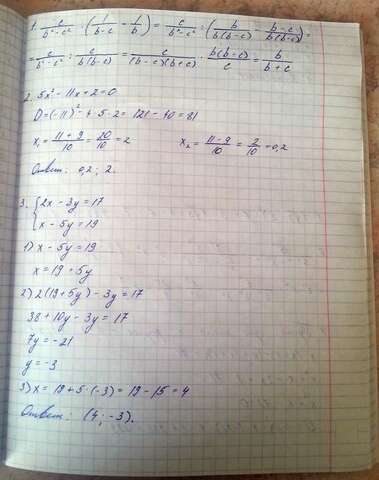 1. c/(b²-c²) : (1/(b-c) - 1/b) = c/(b²-c²) : (b/(b(b-c)) - (b-c)/(b(b-c))) =
= c/(b²-c²) : c/(b(b-c)) = c/((b-c)(b+c)) · b(b-c)/c = b/(b+c)
2. 5x² - 11x + 2 = 0
D = (-11)² - 4·5·2 = 121 - 40 = 81
x₁ = (11 + 9)/10 = 20/10 = 2 x₂ = (11 - 9)/10 = 2/10 = 0,2
Ответ: 0,2; 2.
3. { 2x - 3y = 17
x - 5y = 19
1) x - 5y = 19
x = 19 + 5y
2) 2(19 + 5y) - 3y = 17
38 + 10y - 3y = 17
7y = -21
y = -3
3) x = 19 + 5·(-3) = 19 - 15 = 4
Ответ: (4; -3).